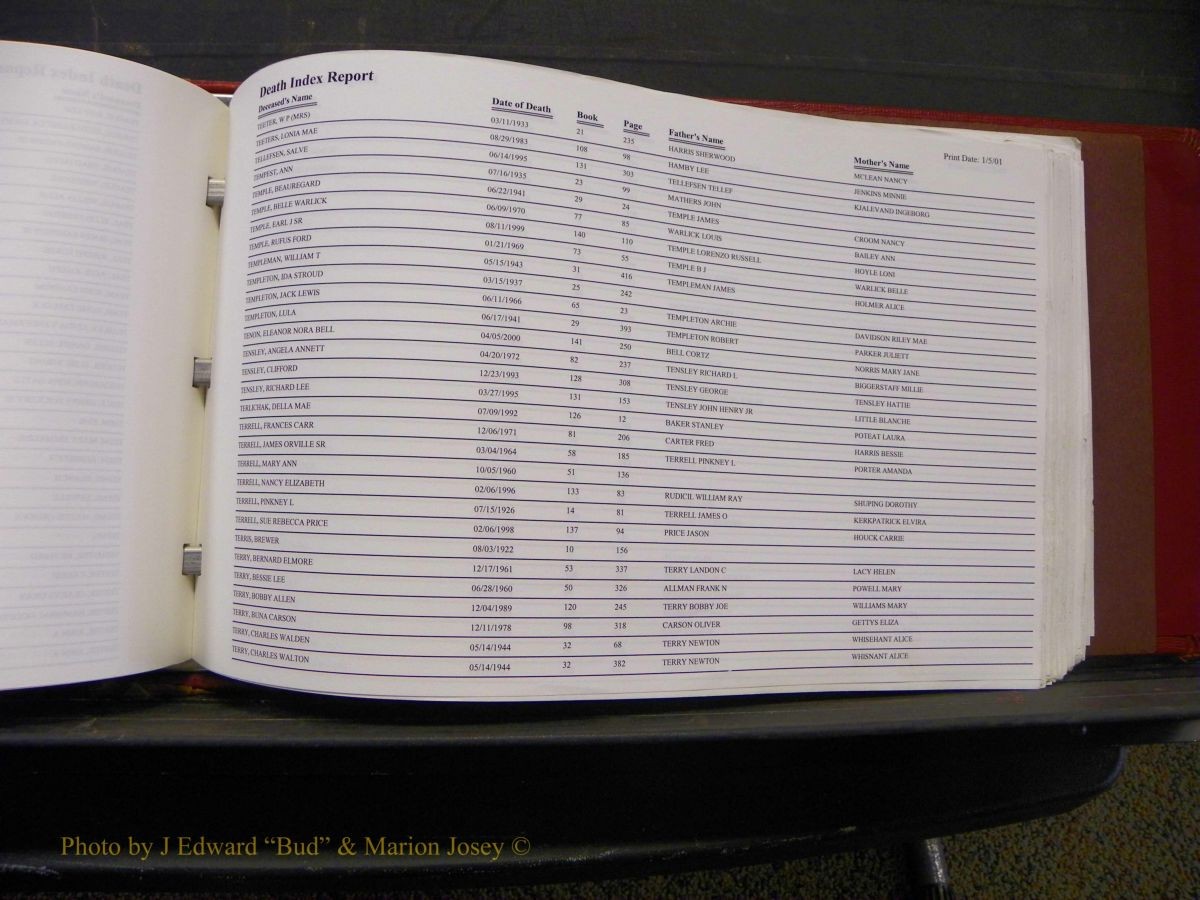 Death Index Report
Print Date: 1/5/01
Deceased's Name Date of Death Book Page Father's Name Mother's Name
TEETER, W P (MRS) 03/11/1933 21 235 HARRIS SHERWOOD MCLEAN NANCY
TEETERS, LONIA MAE 08/29/1983 108 98 HAMBY LEE JENKINS MINNIE
TELLEFSEN, SALVE 06/14/1995 131 303 TELLEFSEN TELLEF KJALEVAND INGEBORG
TEMPEST, ANN 07/16/1935 23 99 MATHERS JOHN
TEMPLE, BEAUREGARD 06/22/1941 29 24 TEMPLE JAMES CROOM NANCY
TEMPLE, BELLE WARLICK 06/09/1970 77 85 WARLICK LOUIS BAILEY ANN
TEMPLE, EARL J SR 08/11/1999 140 110 TEMPLE LORENZO RUSSELL HOYLE LONI
TEMPLE, RUFUS FORD 01/21/1969 73 55 TEMPLE B J WARLICK BELLE
TEMPLEMAN, WILLIAM T 05/15/1943 31 416 TEMPLEMAN JAMES HOLMER ALICE
TEMPLETON, IDA STROUD 03/15/1937 25 242
TEMPLETON, JACK LEWIS 06/11/1966 65 23 TEMPLETON ARCHIE DAVIDSON RILEY MAE
TEMPLETON, LULA 06/17/1941 29 393 TEMPLETON ROBERT PARKER JULIETT
TENON, ELEANOR NORA BELL 04/05/2000 141 250 BELL CORTZ NORRIS MARY JANE
TENSLEY, ANGELA ANNETT 04/20/1972 82 237 TENSLEY RICHARD L BIGGERSTAFF MILLIE
TENSLEY, CLIFFORD 12/23/1993 128 308 TENSLEY GEORGE TENSLEY HATTIE
TENSLEY, RICHARD LEE 03/27/1995 131 153 TENSLEY JOHN HENRY JR LITTLE BLANCHE
TERLICHAK, DELLA MAE 07/09/1992 126 12 BAKER STANLEY POTEAT LAURA
TERRELL, FRANCES CARR 12/06/1971 81 206 CARTER FRED HARRIS BESSIE
TERRELL, JAMES ORVILLE SR 03/04/1964 58 185 TERRELL PINKNEY L PORTER AMANDA
TERRELL, MARY ANN 10/05/1960 51 136
TERRELL, NANCY ELIZABETH 02/06/1996 133 83 RUDICIL WILLIAM RAY SHUPING DOROTHY
TERRELL, PINKNEY L 07/15/1926 14 81 TERRELL JAMES O KERKPATRICK ELVIRA
TERRELL, SUE REBECCA PRICE 02/06/1998 137 94 PRICE JASON HOUCK CARRIE
TERRIS, BREWER 08/03/1922 10 156
TERRY, BERNARD ELMORE 12/17/1961 53 337 TERRY LANDON C LACY HELEN
TERRY, BESSIE LEE 06/28/1960 50 326 ALLMAN FRANK N POWELL MARY
TERRY, BOBBY ALLEN 12/04/1989 120 245 TERRY BOBBY JOE WILLIAMS MARY
TERRY, BUNA CARSON 12/11/1978 98 318 CARSON OLIVER GETTYS ELIZA
TERRY, CHARLES WALDEN 05/14/1944 32 68 TERRY NEWTON WHISEHANT ALICE
TERRY, CHARLES WALTON 05/14/1944 32 382 TERRY NEWTON WHISNANT ALICE
Photo by J Edward “Bud” & Marion Josey ©